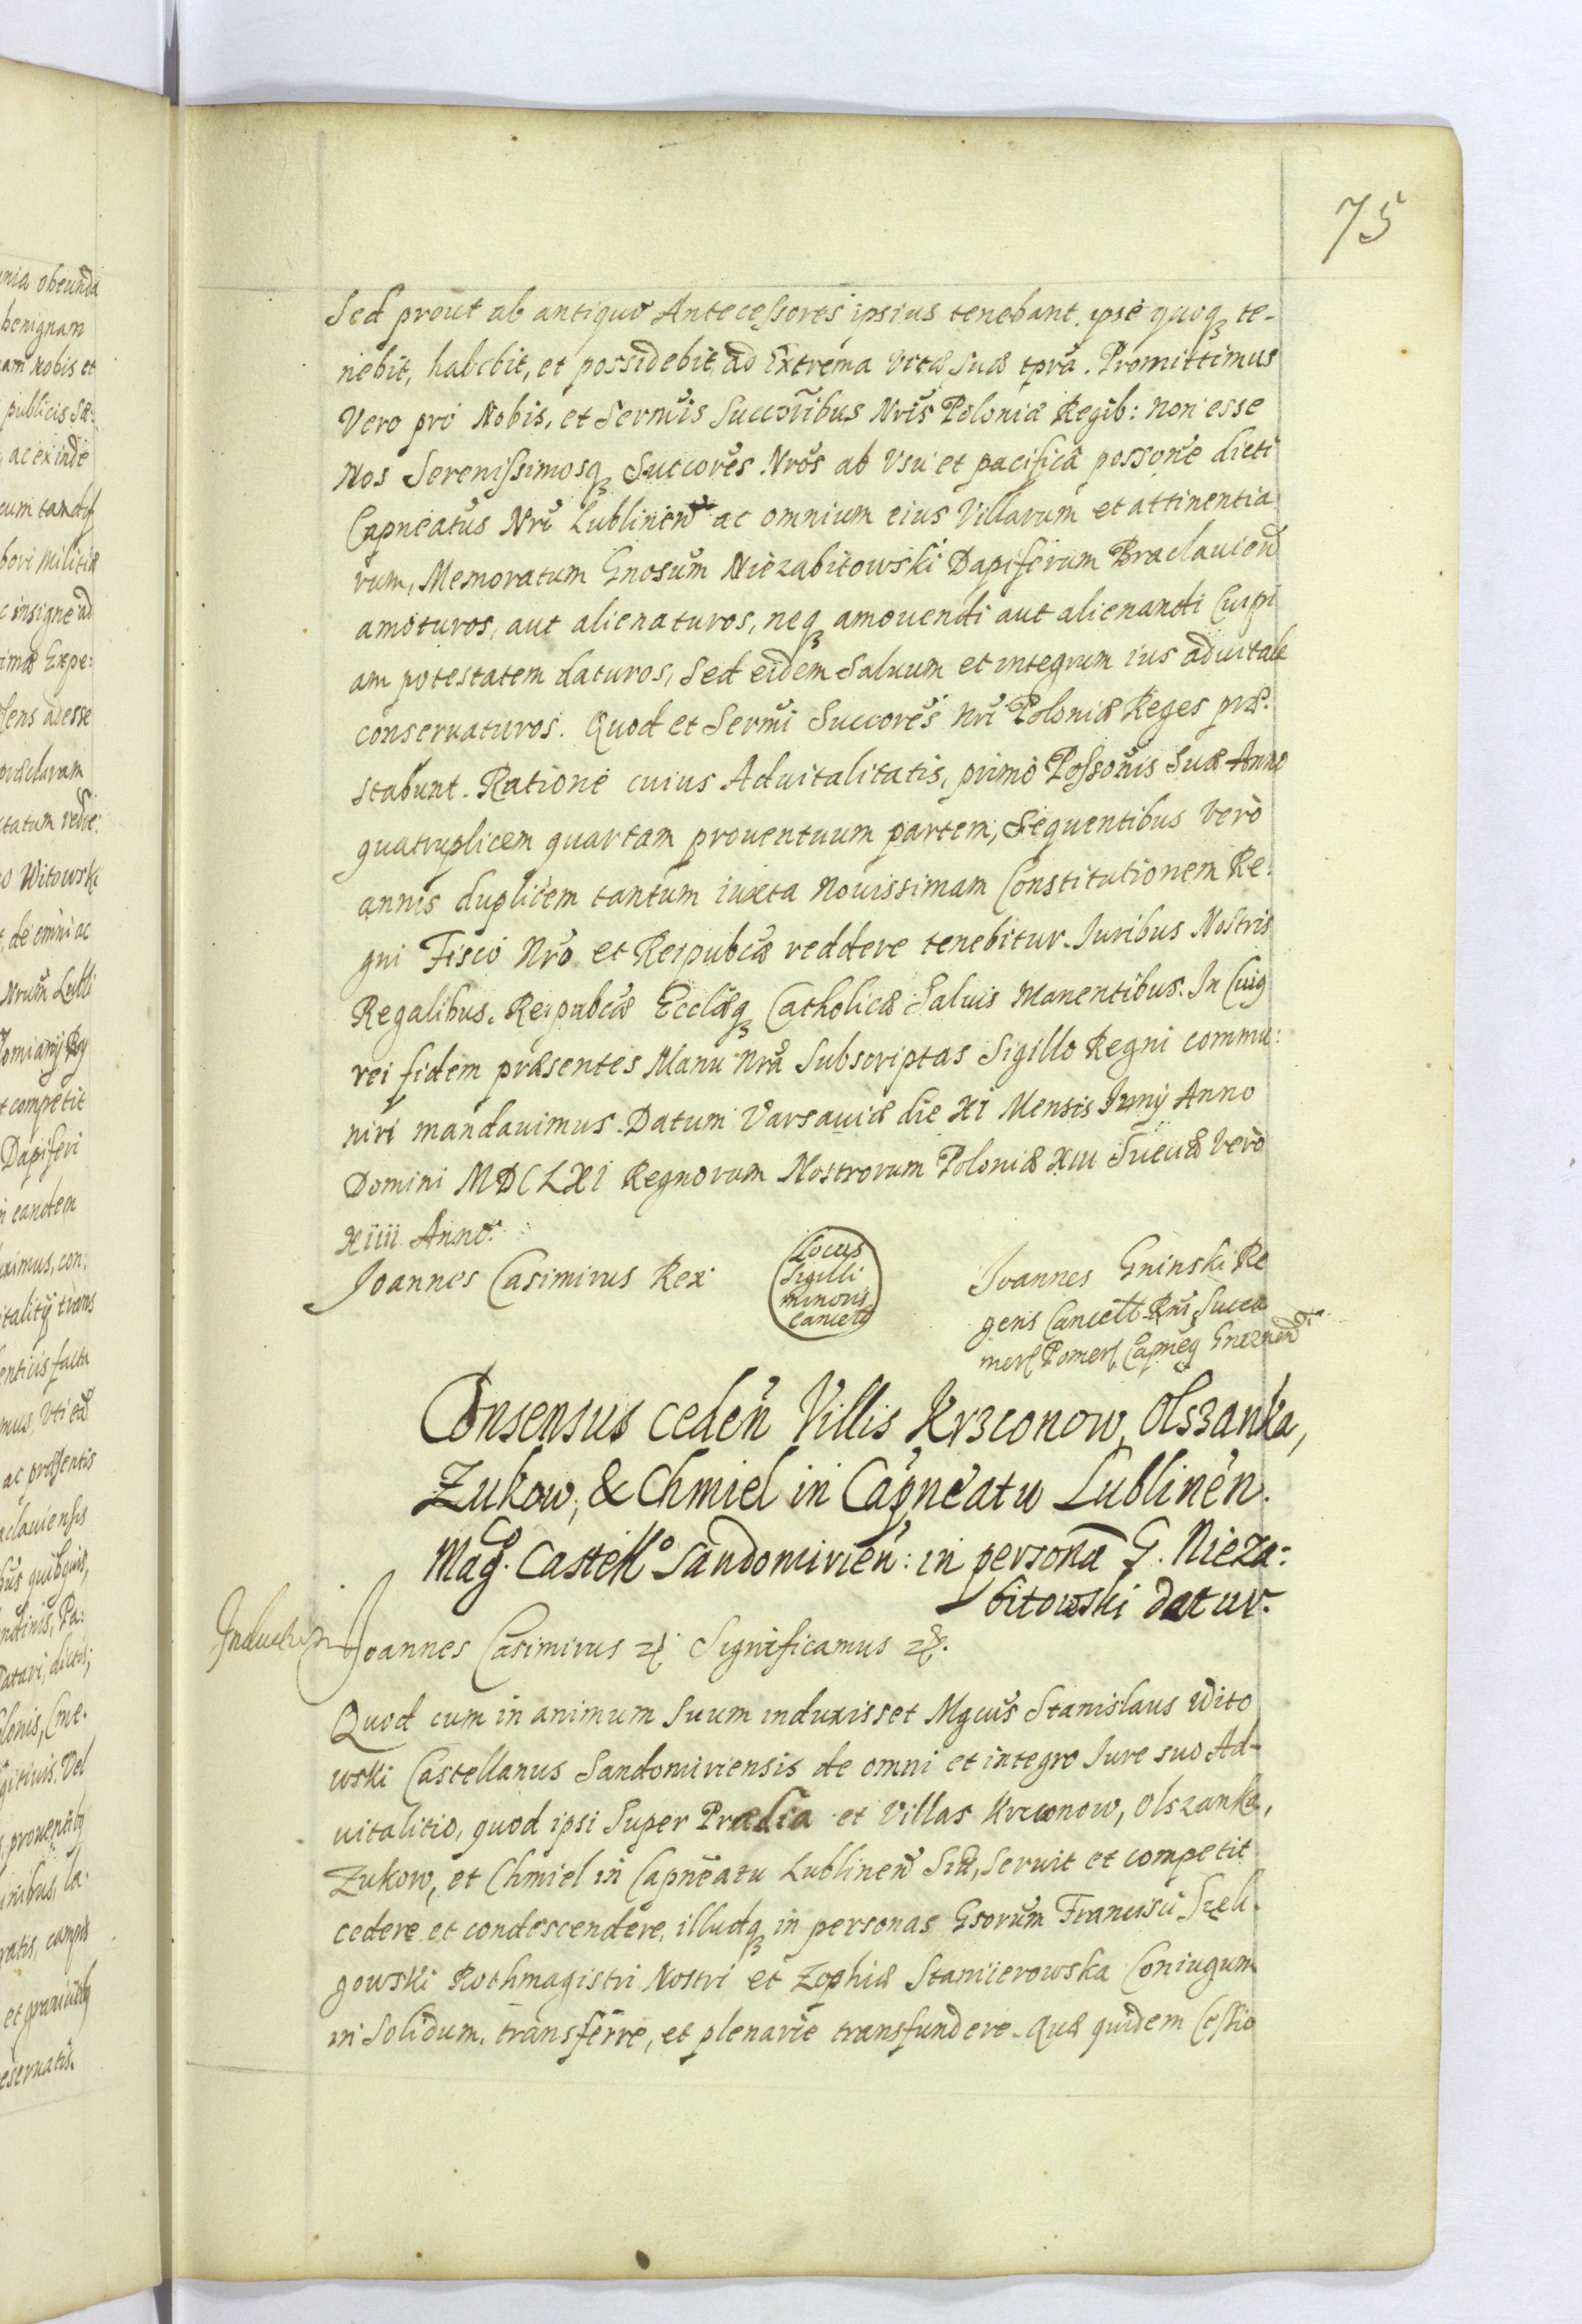 75
Sed prout ab antiquo Antecessores ipsius tenebant, ipse quoq te-
nebit, habebit, et possidebit, ad Extrema vitæ suæ tpra. Promittimus
Vero pro Nobis, et Sermis Succoribus Nris Poloniæ Regib: non esse
Nos Serenissimosq Succores Nros ab Usu et pacifica possone dicti
Capneatus Nri Lublinen ac omnium eius Villarum et attinentia
rum, Memoratum Gnosum Niezabitowski Dapiferum Braclavien
amoturos, aut alienaturos, neq amovendi aut alienandi Cuipi
am potestatem daturos, Sed eidem Saluum et integrum ius aduitale
conseruaturos. Quod et Sermi Succores Nri Poloniæ Reges præ:
stabunt. Ratione cuius Aduitalitatis, primo Possonis Suæ Anno
quatruplicem quartam prouentuum partem, Sequentibus Vero
annis duplicem tantum iuxta Nouissimam Constitutionem Re:
gni Fisco Nro et Reipubcæ reddere tenebitur. Iuribus Nostris
Regalibus, Reipubcæ Ecclæq Catholicæ Saluis Manentibus. In Cuig
rei fidem præsentes Manu Nra Subscriptas Sigillo Regni commu:
niri mandauimus. Datum Varsauiæ die XI Mensis Junij Anno
Domini MDCLXI Regnorum Nostrorum Poloniæ XIII Sueciæ Vero
XIIII Anno.
Joannes Casimirus Rex
Locus
Sigilli
minoris
Cancell
Joannes Gninski Re
gens Cancell Rni, Succa
mer Pomer, Capneq Gneznen
Consensus ceden Villis Krzconow, Olszanka,
Zukow, & Chmiel in Capneatu Lublinen.
Mag. Castello Sandomirien: in persona G. Nieza:
bitowski datur.
Joannes Casimirus &. Significamus &.
Quod cum in animum Suum induxisset Mgcus Stanislaus Wito
wski Castellanus Sandomiriensis de omni et integro Iure suo Ad-
uitalitio, quod ipsi Super Prædia et Villas Krzconow, Olszanka,
Zukow, et Chmiel in Capneatu Lublinen Sit, Seruit et competit
cedere et condescendere, illudq in personas Gsorum Francisci Szeli-
gowski Rothmagistri Nostri et Zophiæ Stamierowska Coniugum
in Solidum, transferre, et plenarie transfundere. Quæ quidem Cessio